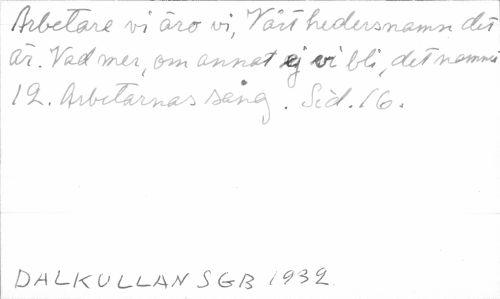 Arbetare vi äro vi, Vårt hedersnamn det
är. Vad mer, om annat ej vi bli, det namn
12. Arbetarnas sång. Sid. 16.
DALKULLAN SGB 1932